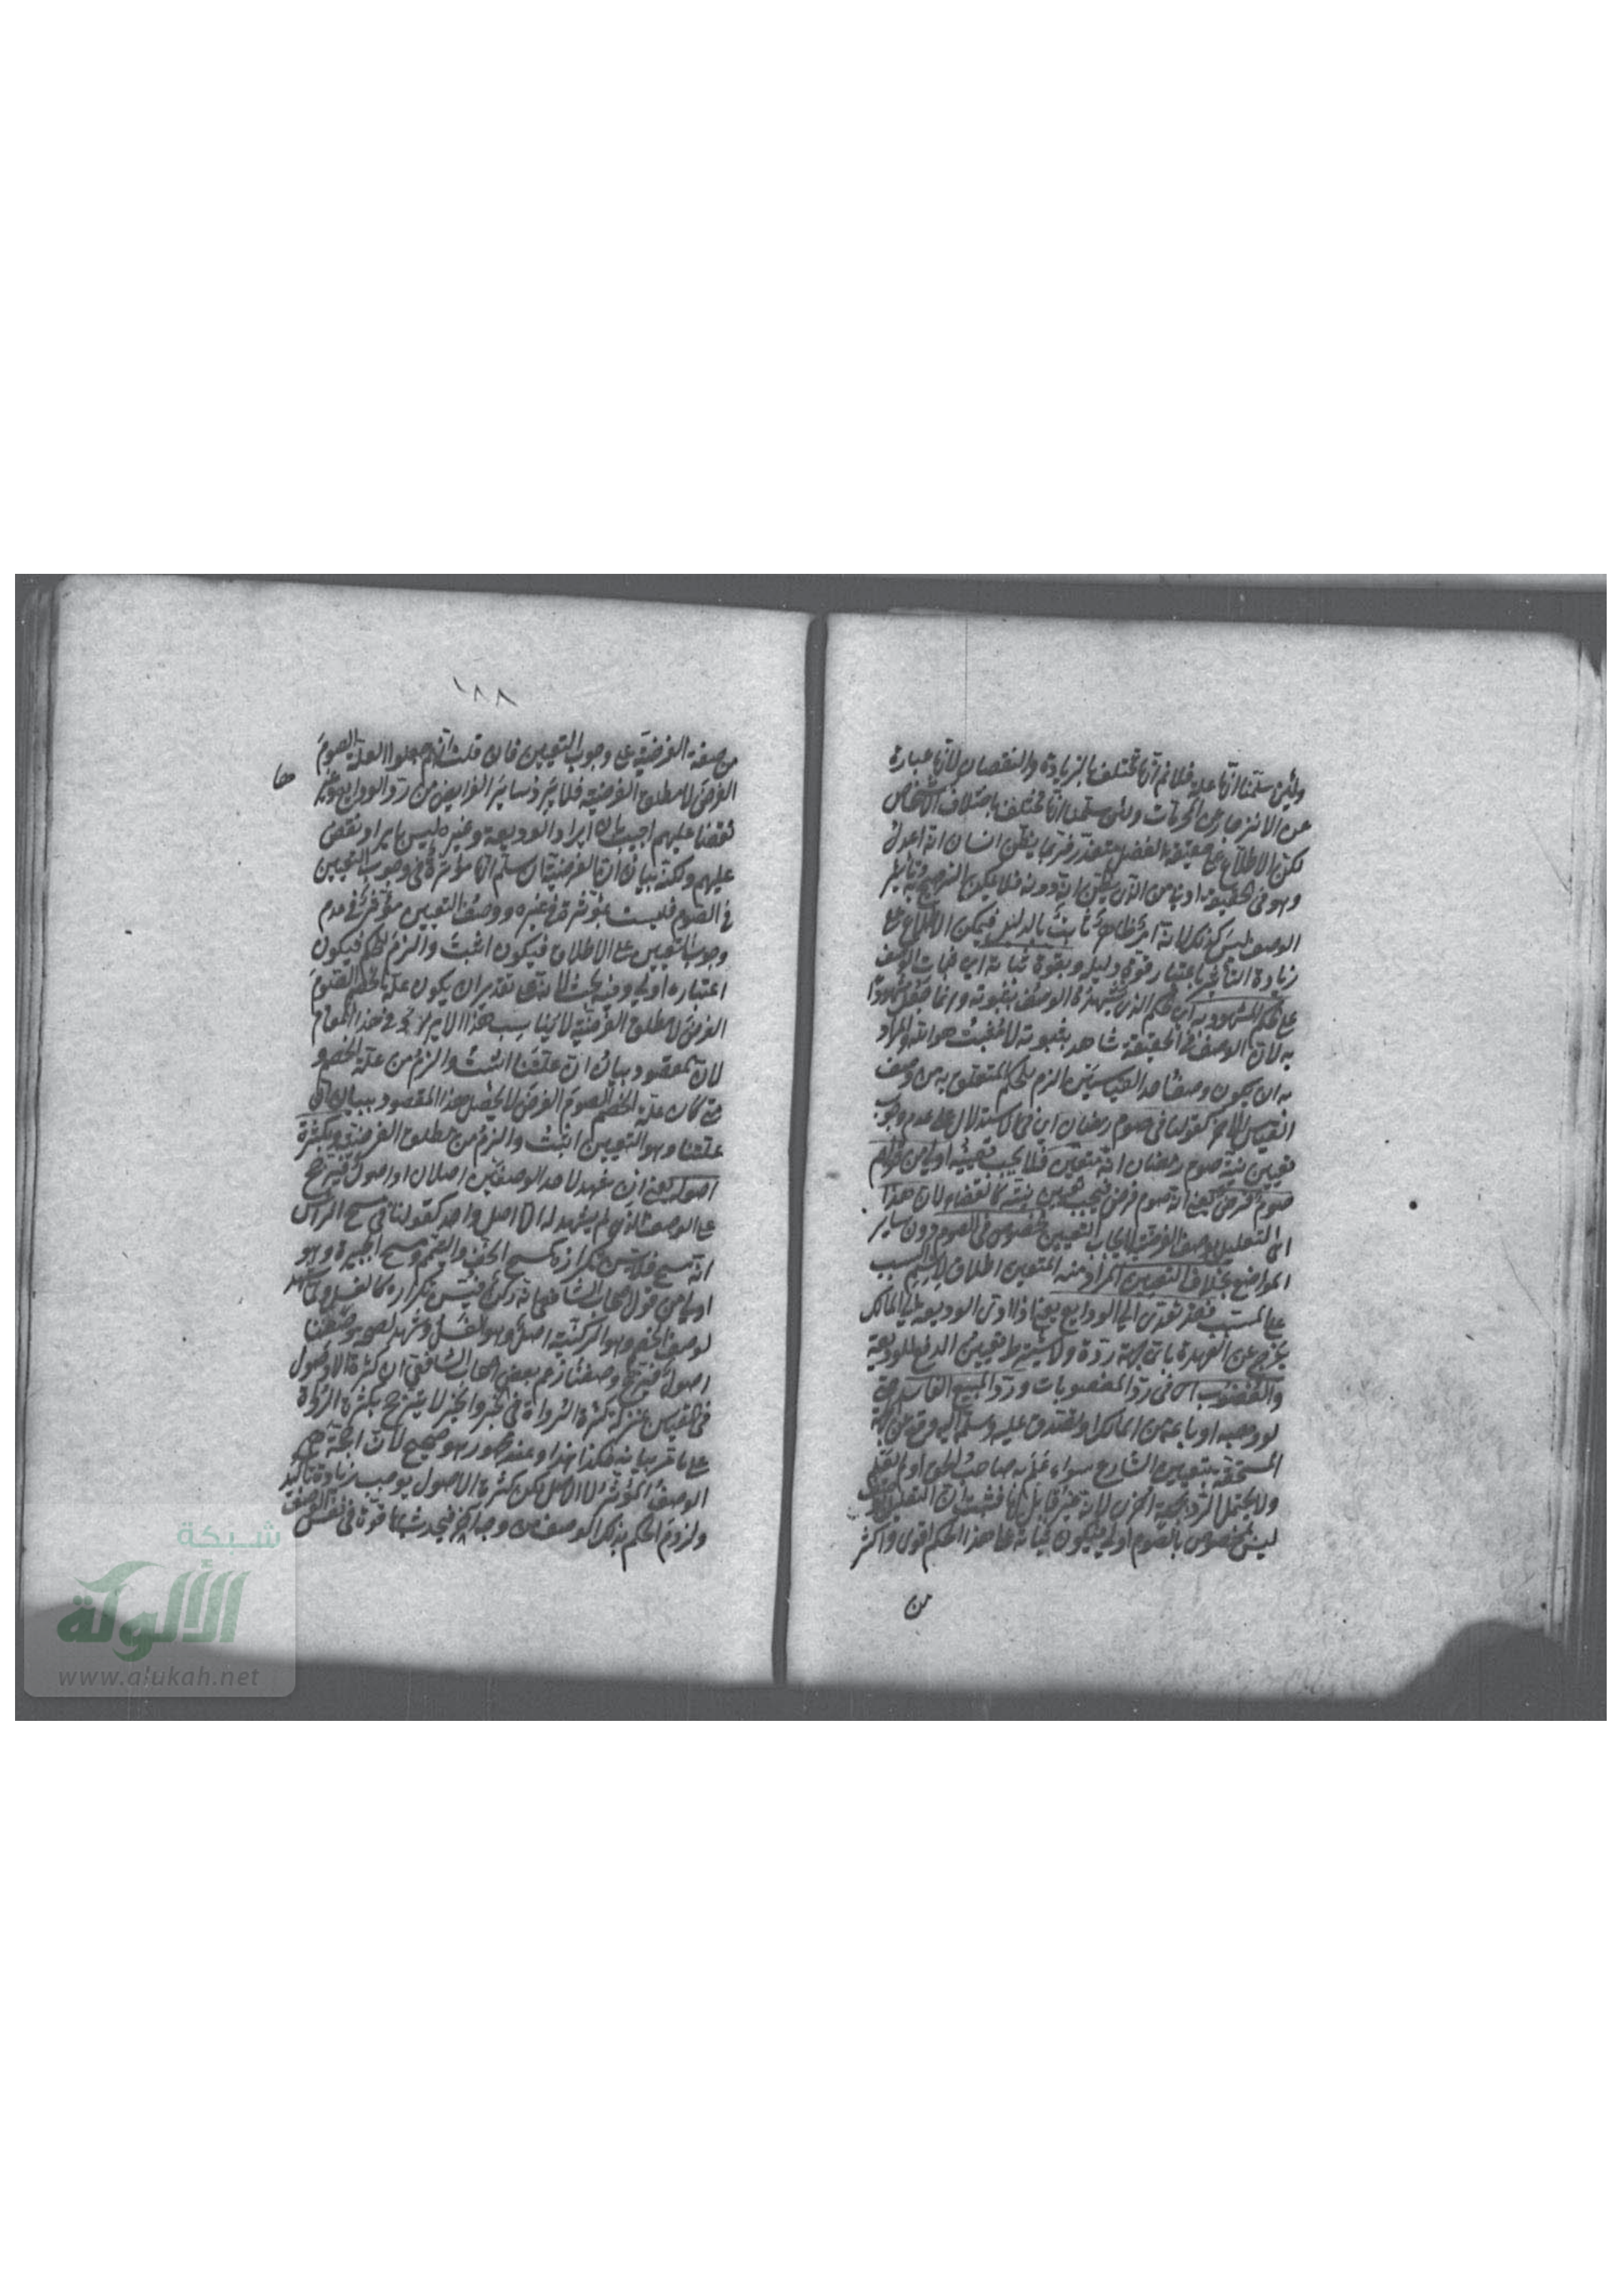 ولئن سلمنا انها علة فلا نم انها تختلف بالزيادة والنقصان لانها عبارة
عن الانزجار عن المحرمات ولئن سلمنا انها تختلف باختلاف الاشخاص
لكن الاطلاع على حقيقة الفضل متعذر فربما يظن انسان انه اعدل
وهو في الحقيقة ادنى من الذي يظن انه دونه فلا يمكن الترجيح به وتاثير
الوصف ليس كذلك لانه امر ظاهر ثابت بالدليل فيمكن الاطلاع على
زيادة التاثير باعتبار قوة دليله وبقوة ثباته اي ثبات الوصف
على الحكم المشهود به اي الحكم الذي يشهد الوصف بثبوته وانما جعل مشهودا
به لان الوصف في الحقيقة شاهد بثبوته لا مثبت هو الله والمراد
به ان يكون وصف احد القياسين الزم للحكم المتعلق به من وصف
القياس الآخر كقولنا في صوم رمضان اي في الاستدلال على عدم وجوب
تعيين نية صوم رمضان انه متعين فلا يجب تعيينه اولى من قولهم
صوم فرض يعني انه صوم فرض فيجب تعيين نيته كالقضاء لان هذا
اي التعليل بوصف الفرضية لايجاب التعيين مخصوص في الصوم دون ساير
المواضع بخلاف التعيين المراد منه المتعين اطلاق لاسم السبب
على المسبب فقد تعدى الى الودايع يعني اذا ادى الوديعة الى المالك
يخرج عن العهدة باي جهة ردة ولا يشترط تعيين الدفع للوديعة
والغصوب اي في رد المغصوبات ورد المبيع الفاسد حتى
لو وهبه او باعه من المالك او تصدق عليه وسلمه اليه وقع من جهة
المستحقة بتعيين الشارع سواء علم به صاحب الحق او لم يعلم
ولا يحتمل الرد بجهة اخرى لانه غير قابل لها فثبت ان التعليل
ليس مخصوص بالصوم اولى فيكون ثباته على هذا الحكم اقوى واكثر
من
١٨٨
من صفة الفرضية على وجوب التعيين فان قلت انهم جعلوا العلة الصوم
الفرض لا مطلق الفرضية فلا يرد ساير الفرايض من رد الودايع وغير
ها
نقضا عليهم اجيب بان ايراد الوديعة وغيره ليس بايراد نقض
عليهم ولكنه بيان ان الفرضية ان سلم انها مؤثرة في وجوب التعيين
في الصوم فليست بمؤثرة في غيره ووصف التعيين مؤثر في عدم
وجوب التعيين على الاطلاق فيكون اثبت والزم للحكم فيكون
اعتباره اولى وفيه بحث لانه على تقدير ان يكون علة الخصم الصوم
الفرض لا مطلق الفرضية لا يناسب هذا الايراد في هذا المقام
لان المقصود بيان ان علتنا اثبت والزم من علة الخصم و
متى كان علة الخصم الصوم الفرض لا يحصل هذا المقصود ببيان ان
علتنا وهو التعيين اثبت والزم من مطلق الفرضية وبكثرة
اصوله يعني ان شهد لاحد الوصفين اصلان او اصول فيترجح
على الوصف الذي لم يشهد له الا اصل واحد كقولنا في مسح الراس
انه مسح فلا يسن تكراره كمسح الخف والتيمم ومسح الجبيرة وهو
اولى من قول اصحاب الشافعي انه ركن فيسن تكراره كالغسل ولما شهد
لوصف الخصم وهو الركنية اصل وهو الغسل وشهد لصحة وصفنا
اصول فترجح وصفنا زعم بعض اصحاب الشافعي ان كثرة الاصول
في القياس بمنزلة كثرة الرواة في الخبر والخبر لا يترجح بكثرة الرواة
على ما مر بيانه فكذا هذا وعند الجمهور هو صحيح لان الحجة هي
الوصف المؤثر لا الاصل لكن كثرة الاصول يوجب زيادة تاكيد
ولزوم الحكم بذلك الوصف من وجه آخر فيحدث بها قوة في نفس الوصف
شبكة
الألوكة
www.alukah.net